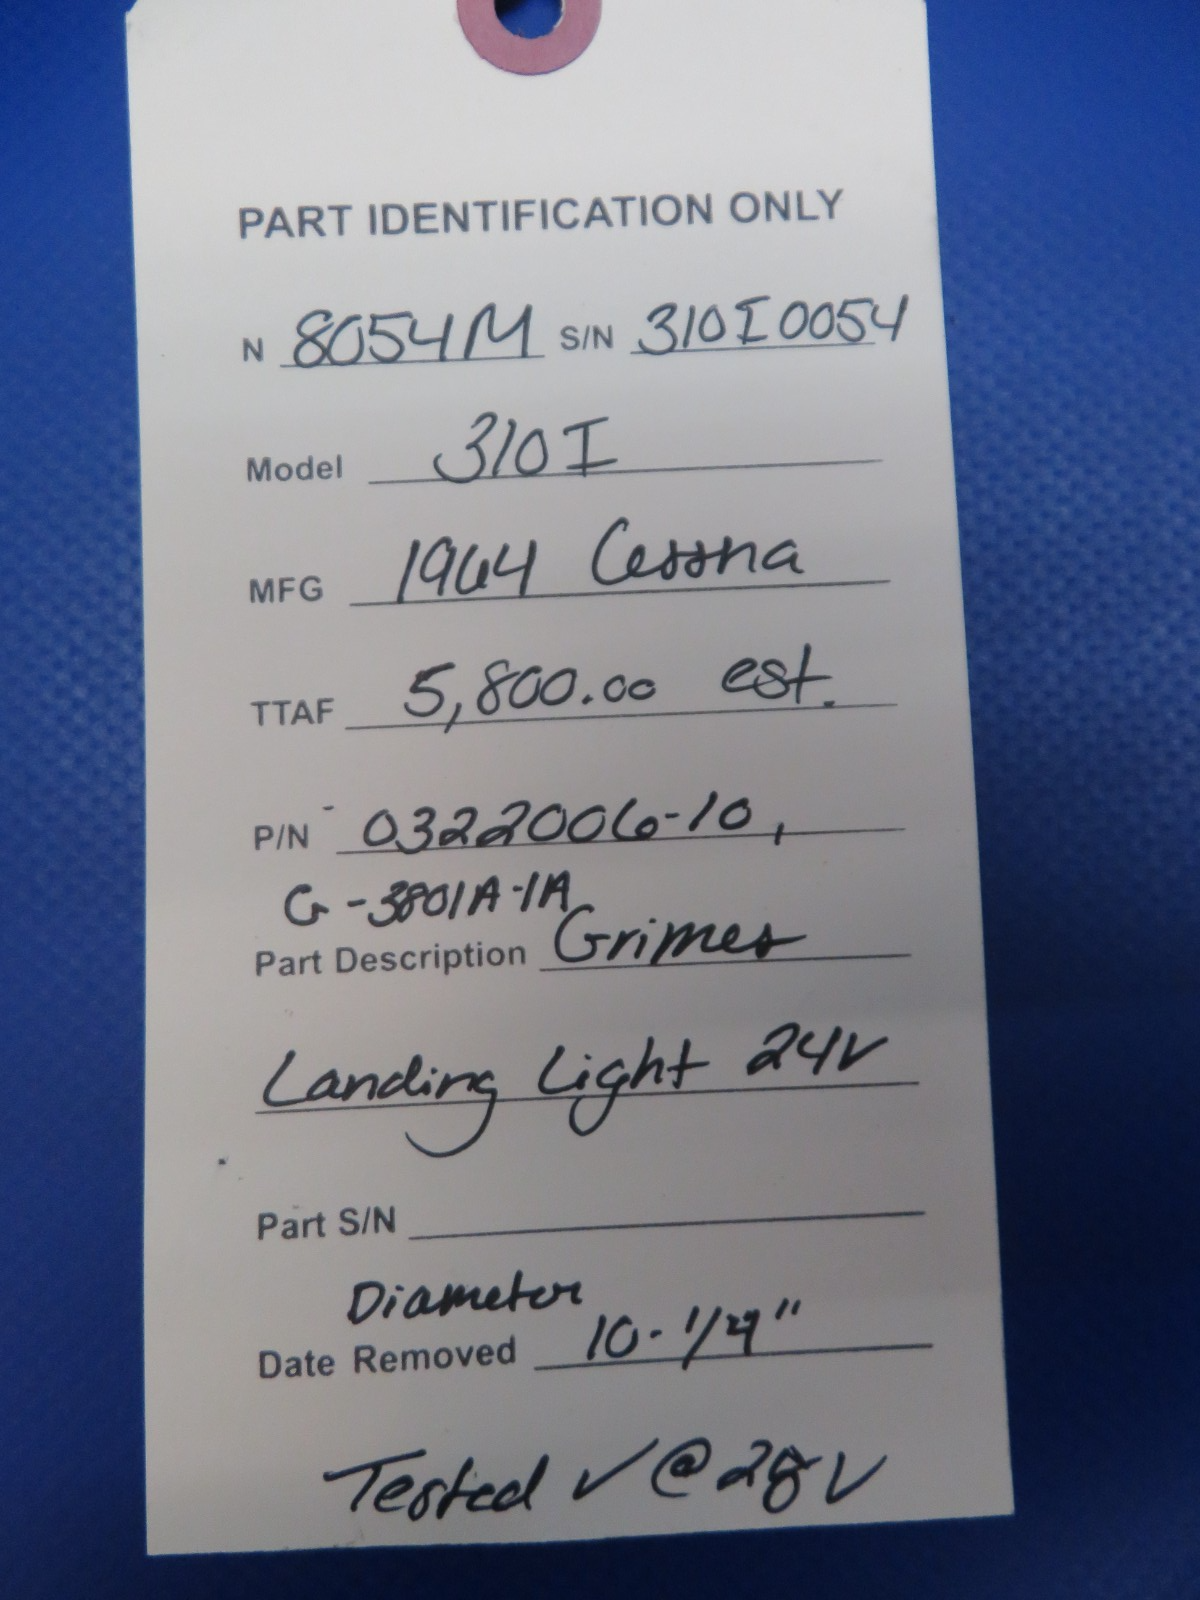 PART IDENTIFICATION ONLY
N 8054M S/N 310I0054
Model 310I
MFG 1964 Cessna
TTAF 5,800.00 est.
P/N 0322006-10,
G-3801A-1A
Part Description Grimes
Landing Light 24V
Part S/N
Diameter
Date Removed 10-1/4"
Tested ✓ @ 28V